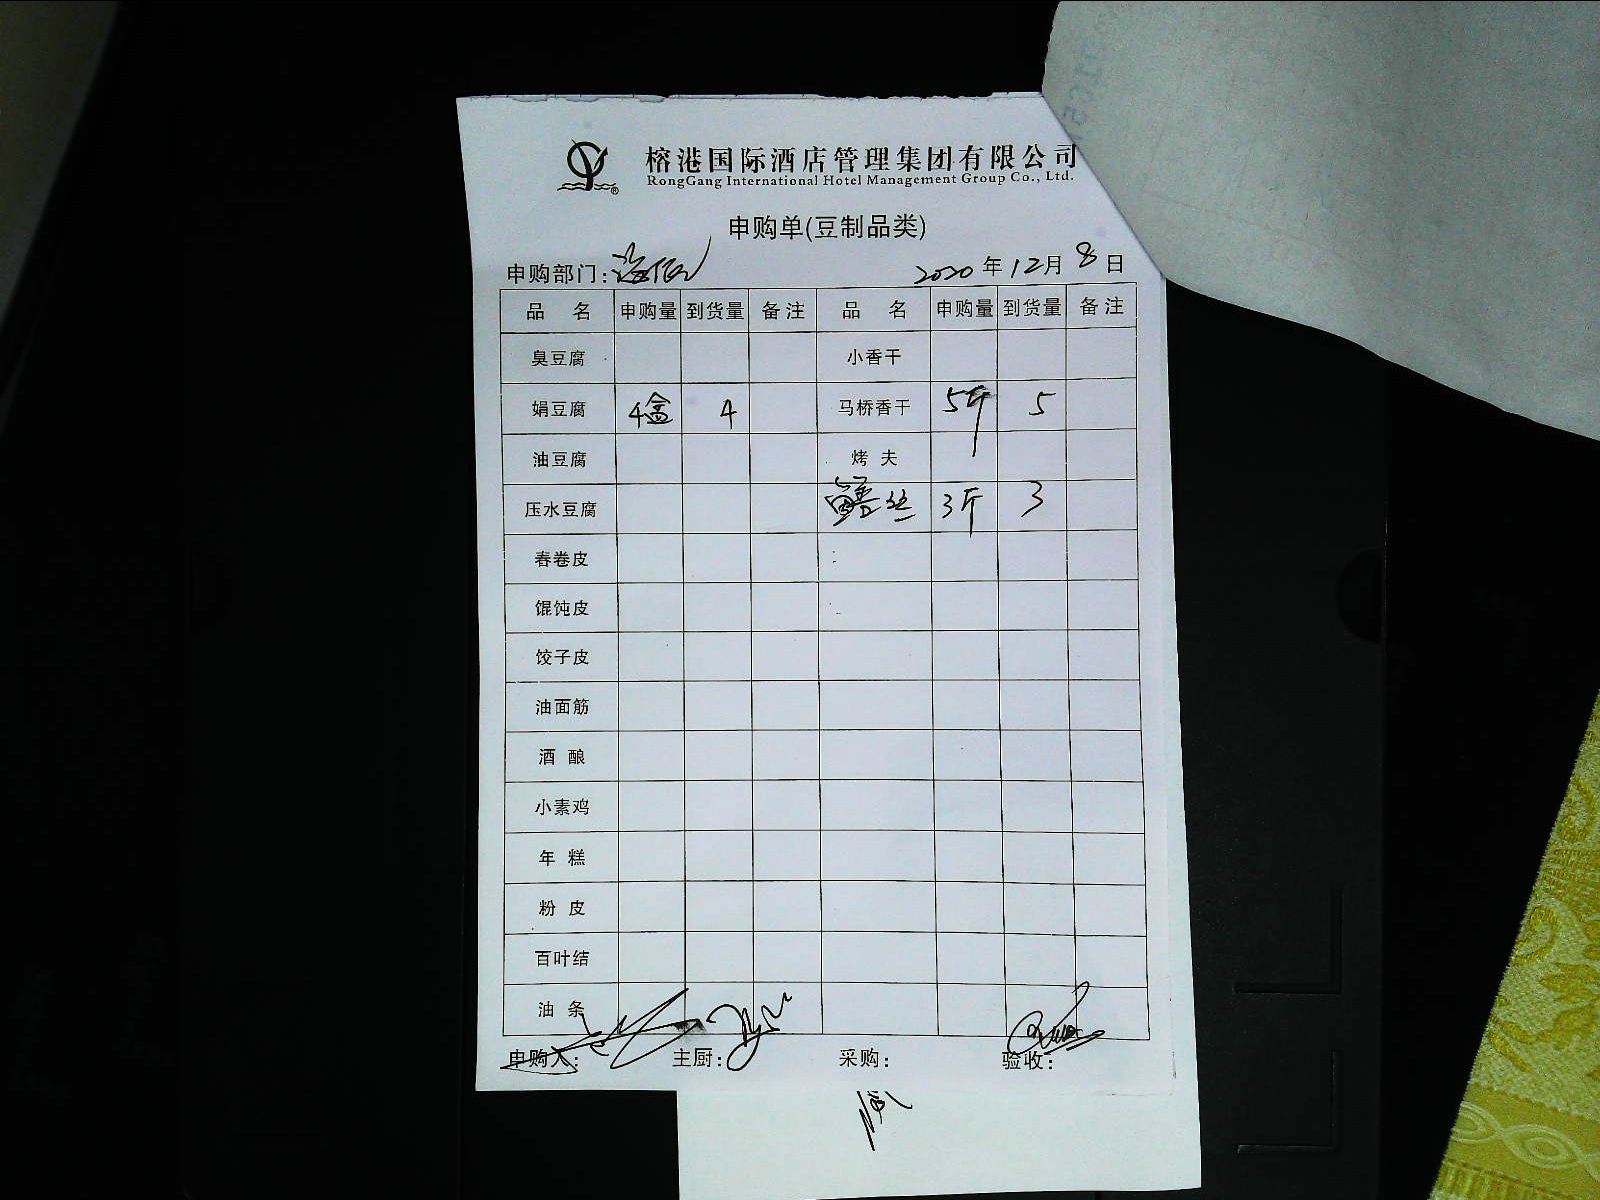 榕港国际酒店管理集团有限公司
RongGang International Hotel Management Group Co., Ltd.
申购单(豆制品类)
申购部门: 2020年12月8日
品名 申购量 到货量 备注 品名 申购量 到货量 备注
臭豆腐 小香干
娟豆腐 4盒 4 马桥香干 5斤 5
油豆腐 烤夫
压水豆腐 鳝丝 3斤 3
春卷皮
馄饨皮
饺子皮
油面筋
酒酿
小素鸡
年糕
粉皮
百叶结
油条
申购人: 主厨: 采购: 验收: